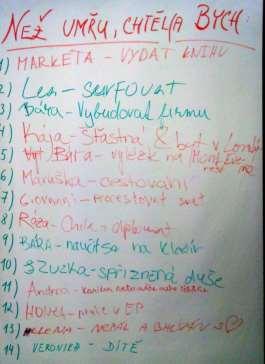 NEŽ UMŘU, CHTĚL/A BYCH:
1) MARKÉTA - VYDAT KNIHU
2) Lea - SURFOVAT
3) Bára - Vybudovat firmu
4) Kája - Šťastná & být v
5) Bára - výlet na Mont
6) Maruška - cestování
7) Giovanni - procestovat svět
8) Róza - Chile - diplomat
9) BÁRA - naučit sa na klavír
10) Zuzka - spřízněná duše
11) Andrea -
12) HONKA - práce v EP
13) HELENA - NEPÁL A
14) VERONIKA - DÍTĚ